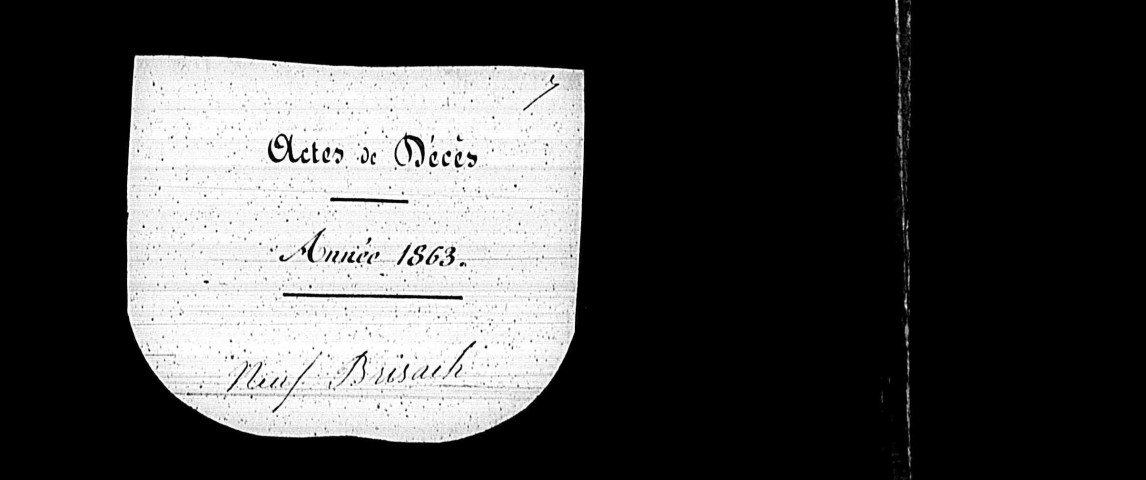 Actes de Décès
Année 1863.
Neuf Brisach